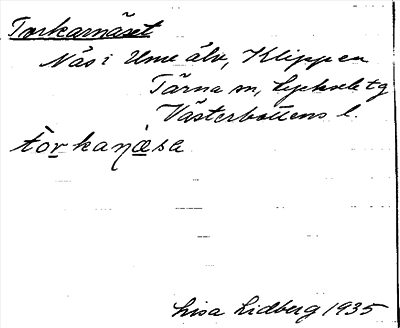 Torkarnäset
Näs i Ume älv, Klippen
Tärna sn, Lycksele tg
Västerbottens l.
tòrkaɳæ̀sa
Lisa Lidberg 1935